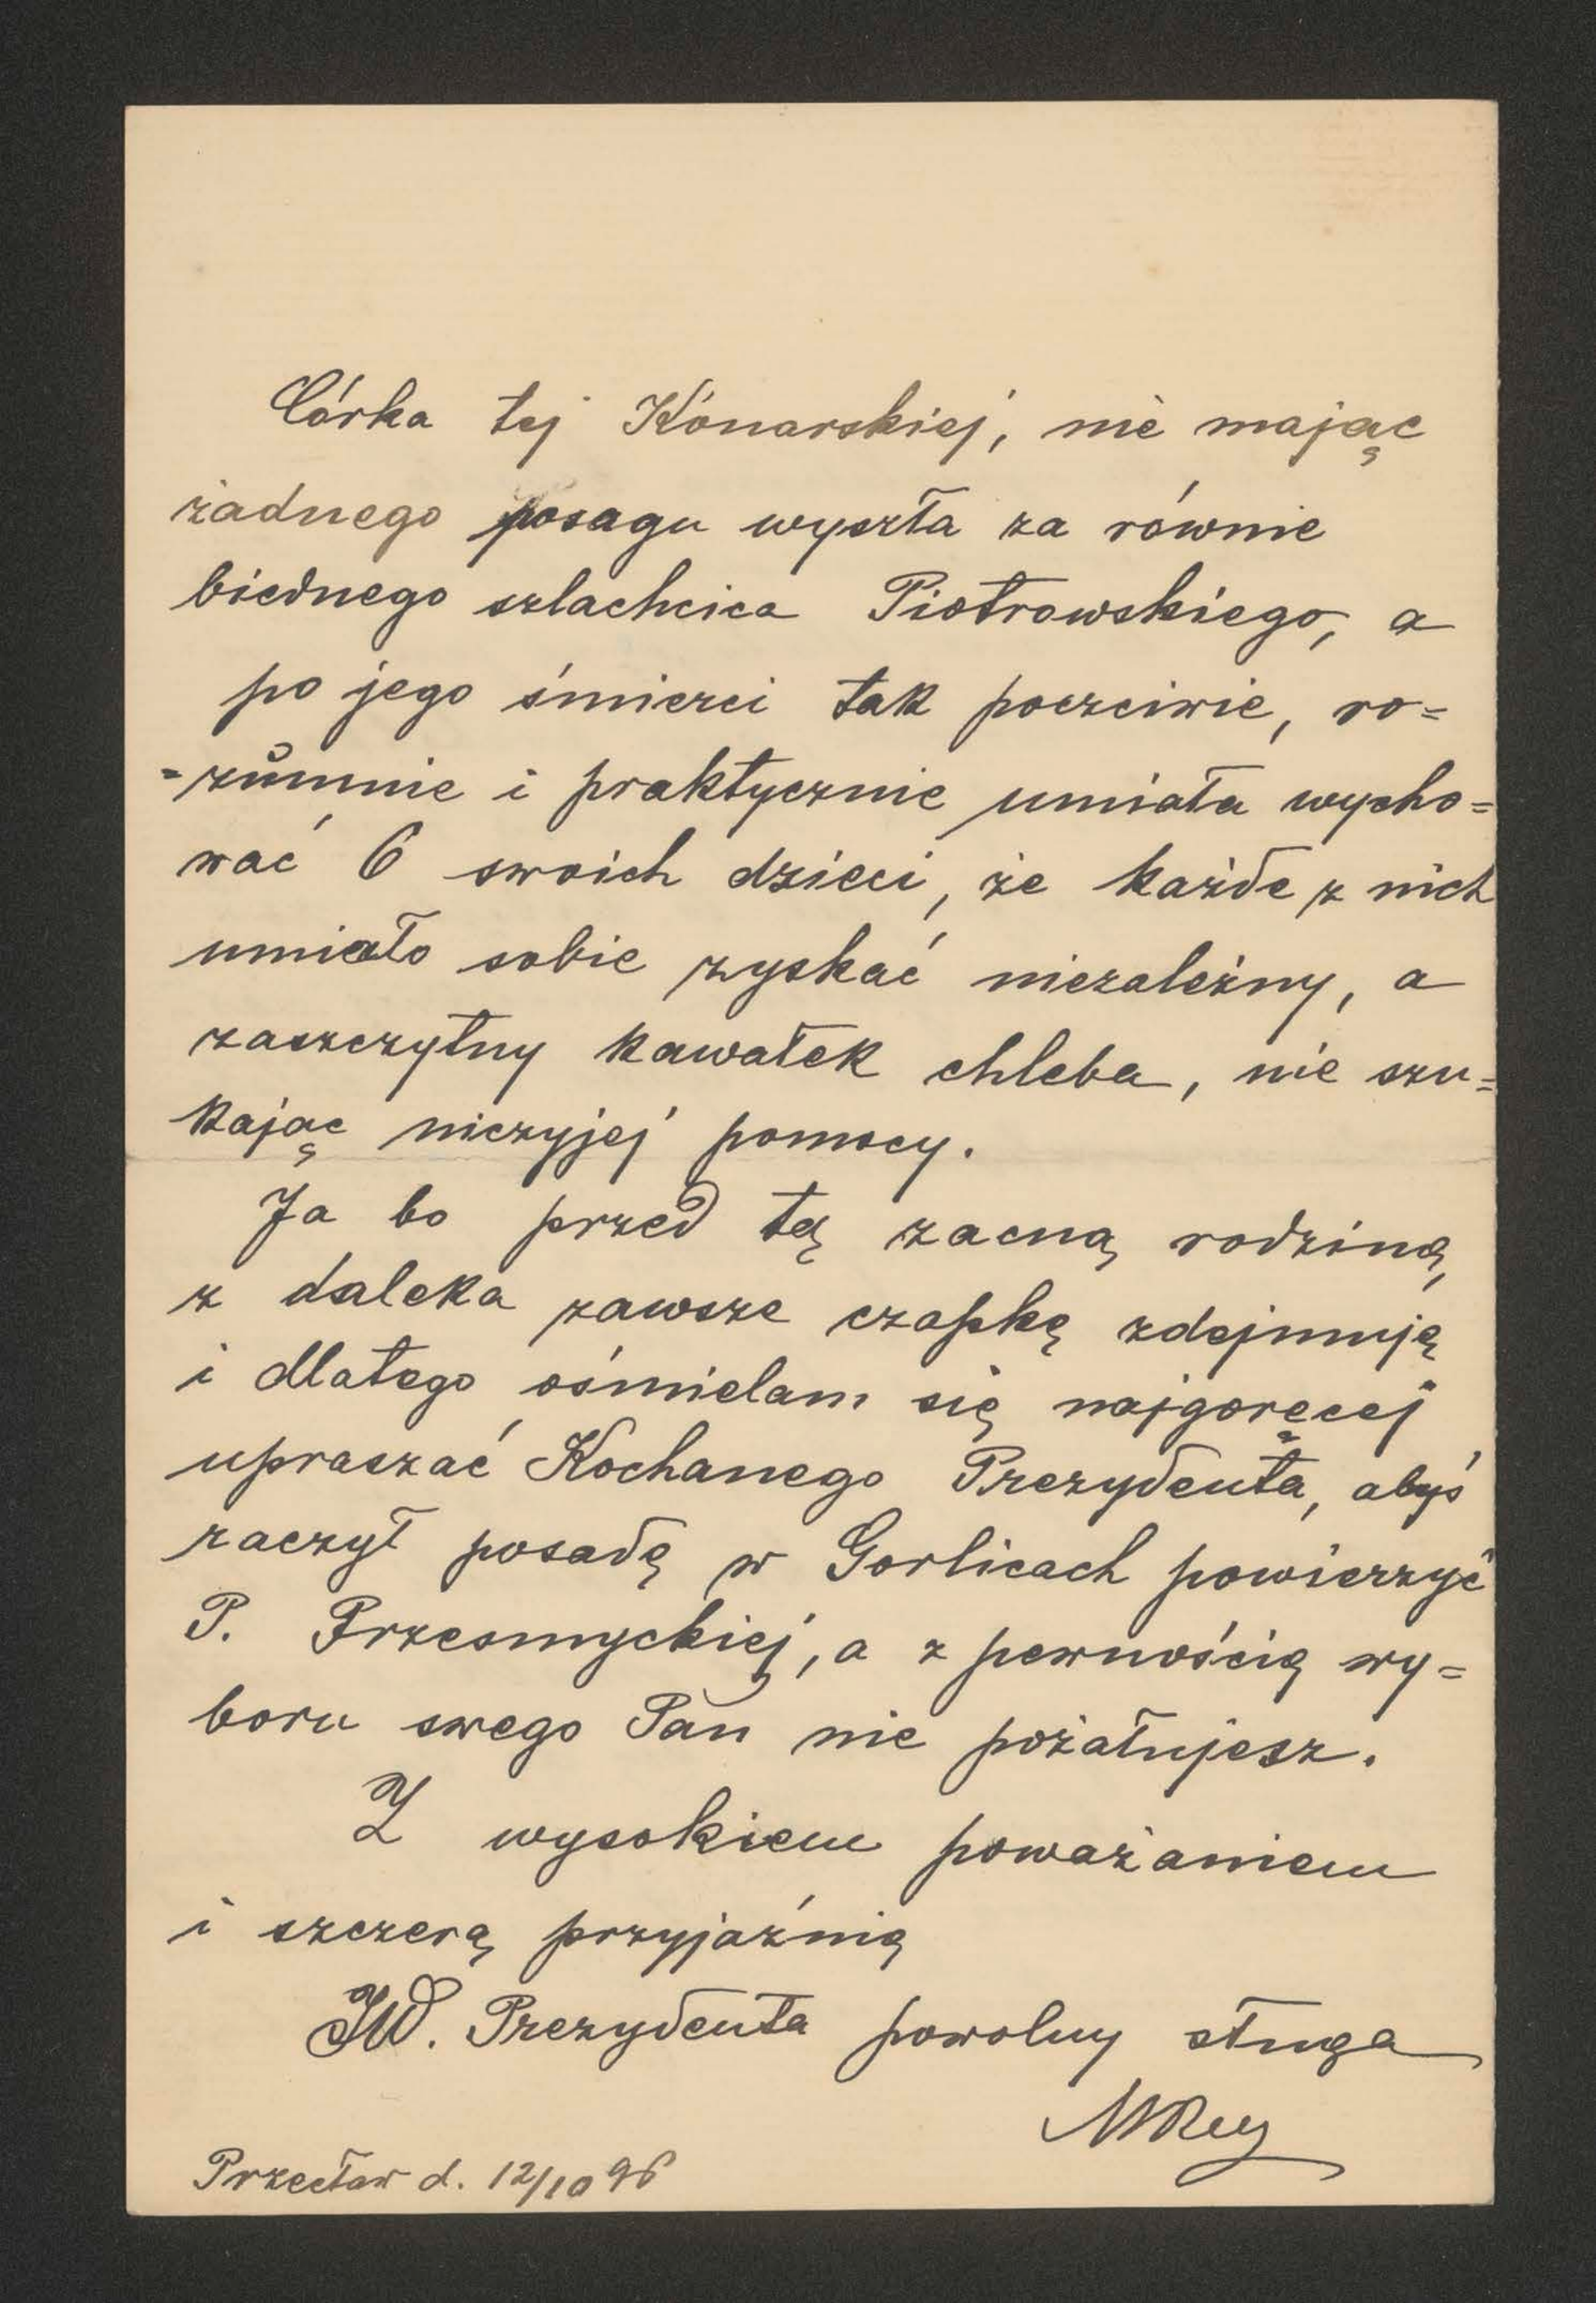 Córka tej Konarskiej, nie mając
żadnego posagu wyszła za równie
biednego szlachcica Piotrowskiego, a
po jego śmierci tak poczciwie, ro=
=zumnie i praktycznie umiała wycho=
wać 6 swoich dzieci, że każde z nich
umiało sobie zyskać niezależny, a
zaszczytny kawałek chleba, nie szu=
kając niczyjej pomocy.
Ja bo przed tą zacną rodziną,
z daleka zawsze czapkę zdejmuję
i dlatego ośmielam się najgoręcej
upraszać Kochanego Prezydenta, abyś
raczył posadę w Gorlicach powierzyć
P. Przesmyckiej, a z pewnością wy=
boru swego Pan nie pożałujesz.
Z wysokiem poważaniem
i szczerą przyjaźnią
JW. Prezydenta powolny sługa
MRey
Przecław d. 12/10 96